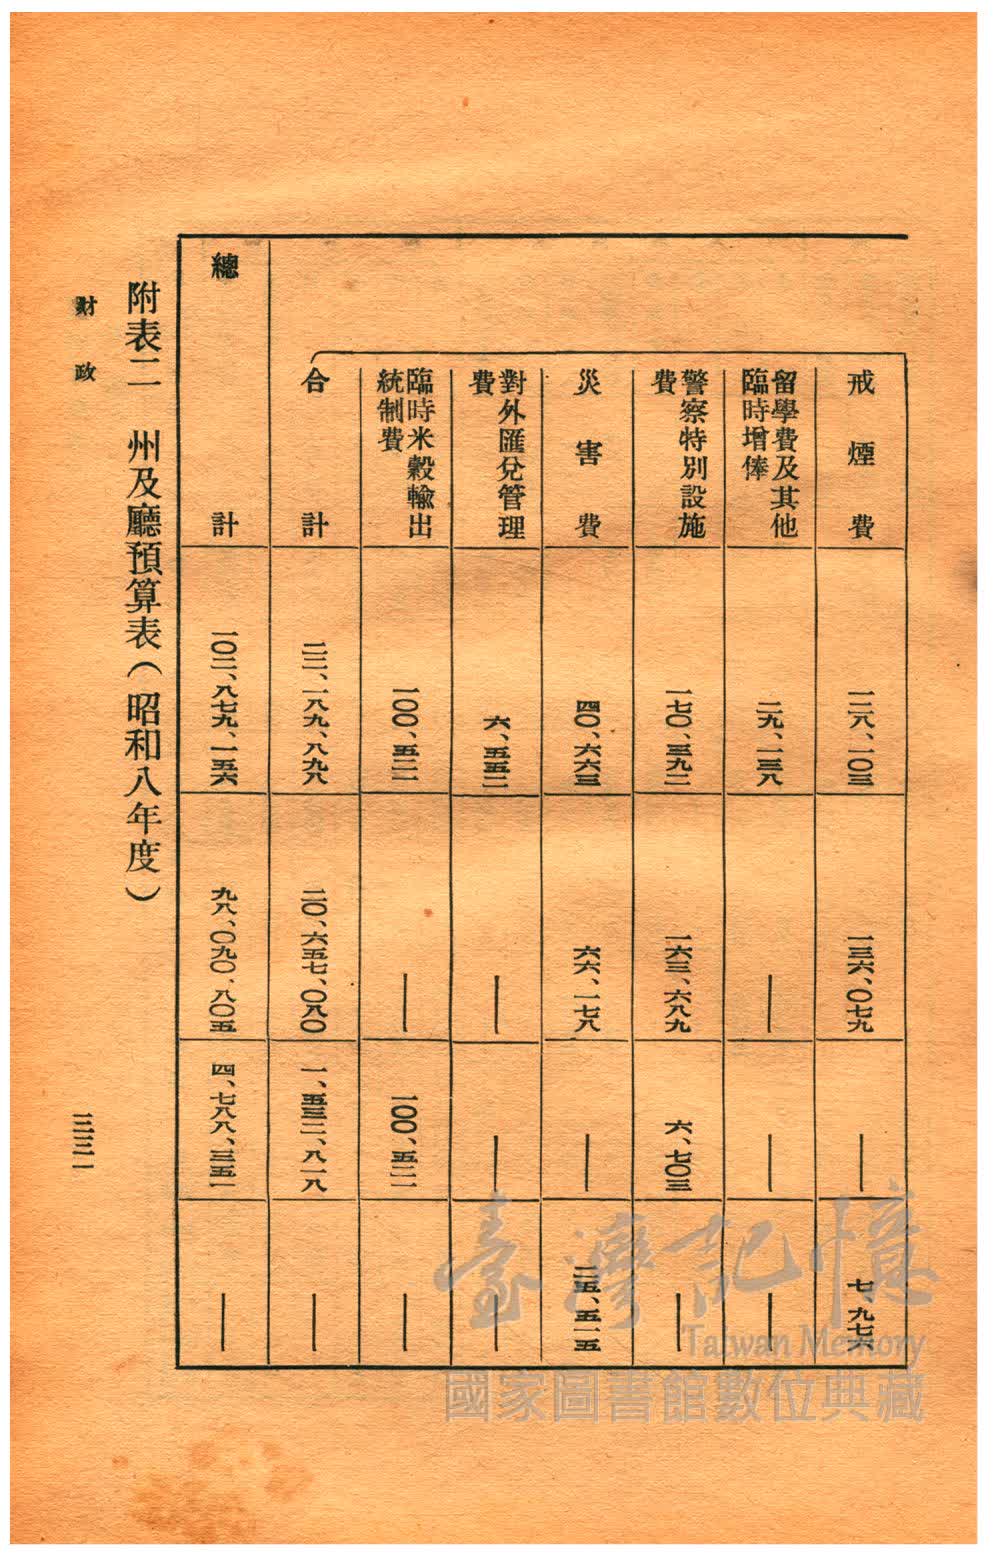 戒煙費
一二八、一〇三
一三六、〇七九
—
七、九七六
留學費及其他
臨時增俸
二九、一三八
—
—
—
警察特別設施
費
一七〇、三九二
一六三、六八九
六、七〇三
—
災害費
四〇、六六三
六六、一七八
—
二五、五一五
對外匯兌管理
費
六、五五二
—
—
—
臨時米穀輸出
統制費
一〇〇、五二一
—
一〇〇、五二一
—
合計
二二、一八九、八九八
二〇、六五七、〇八〇
一、五三二、八一八
—
總計
一〇二、八七九、一五六
九八、〇九〇、八〇五
四、七八八、三五一
—
附表二 州及廳預算表(昭和八年度)
財政
三三一
臺灣記憶
Taiwan Memory
國家圖書館數位典藏